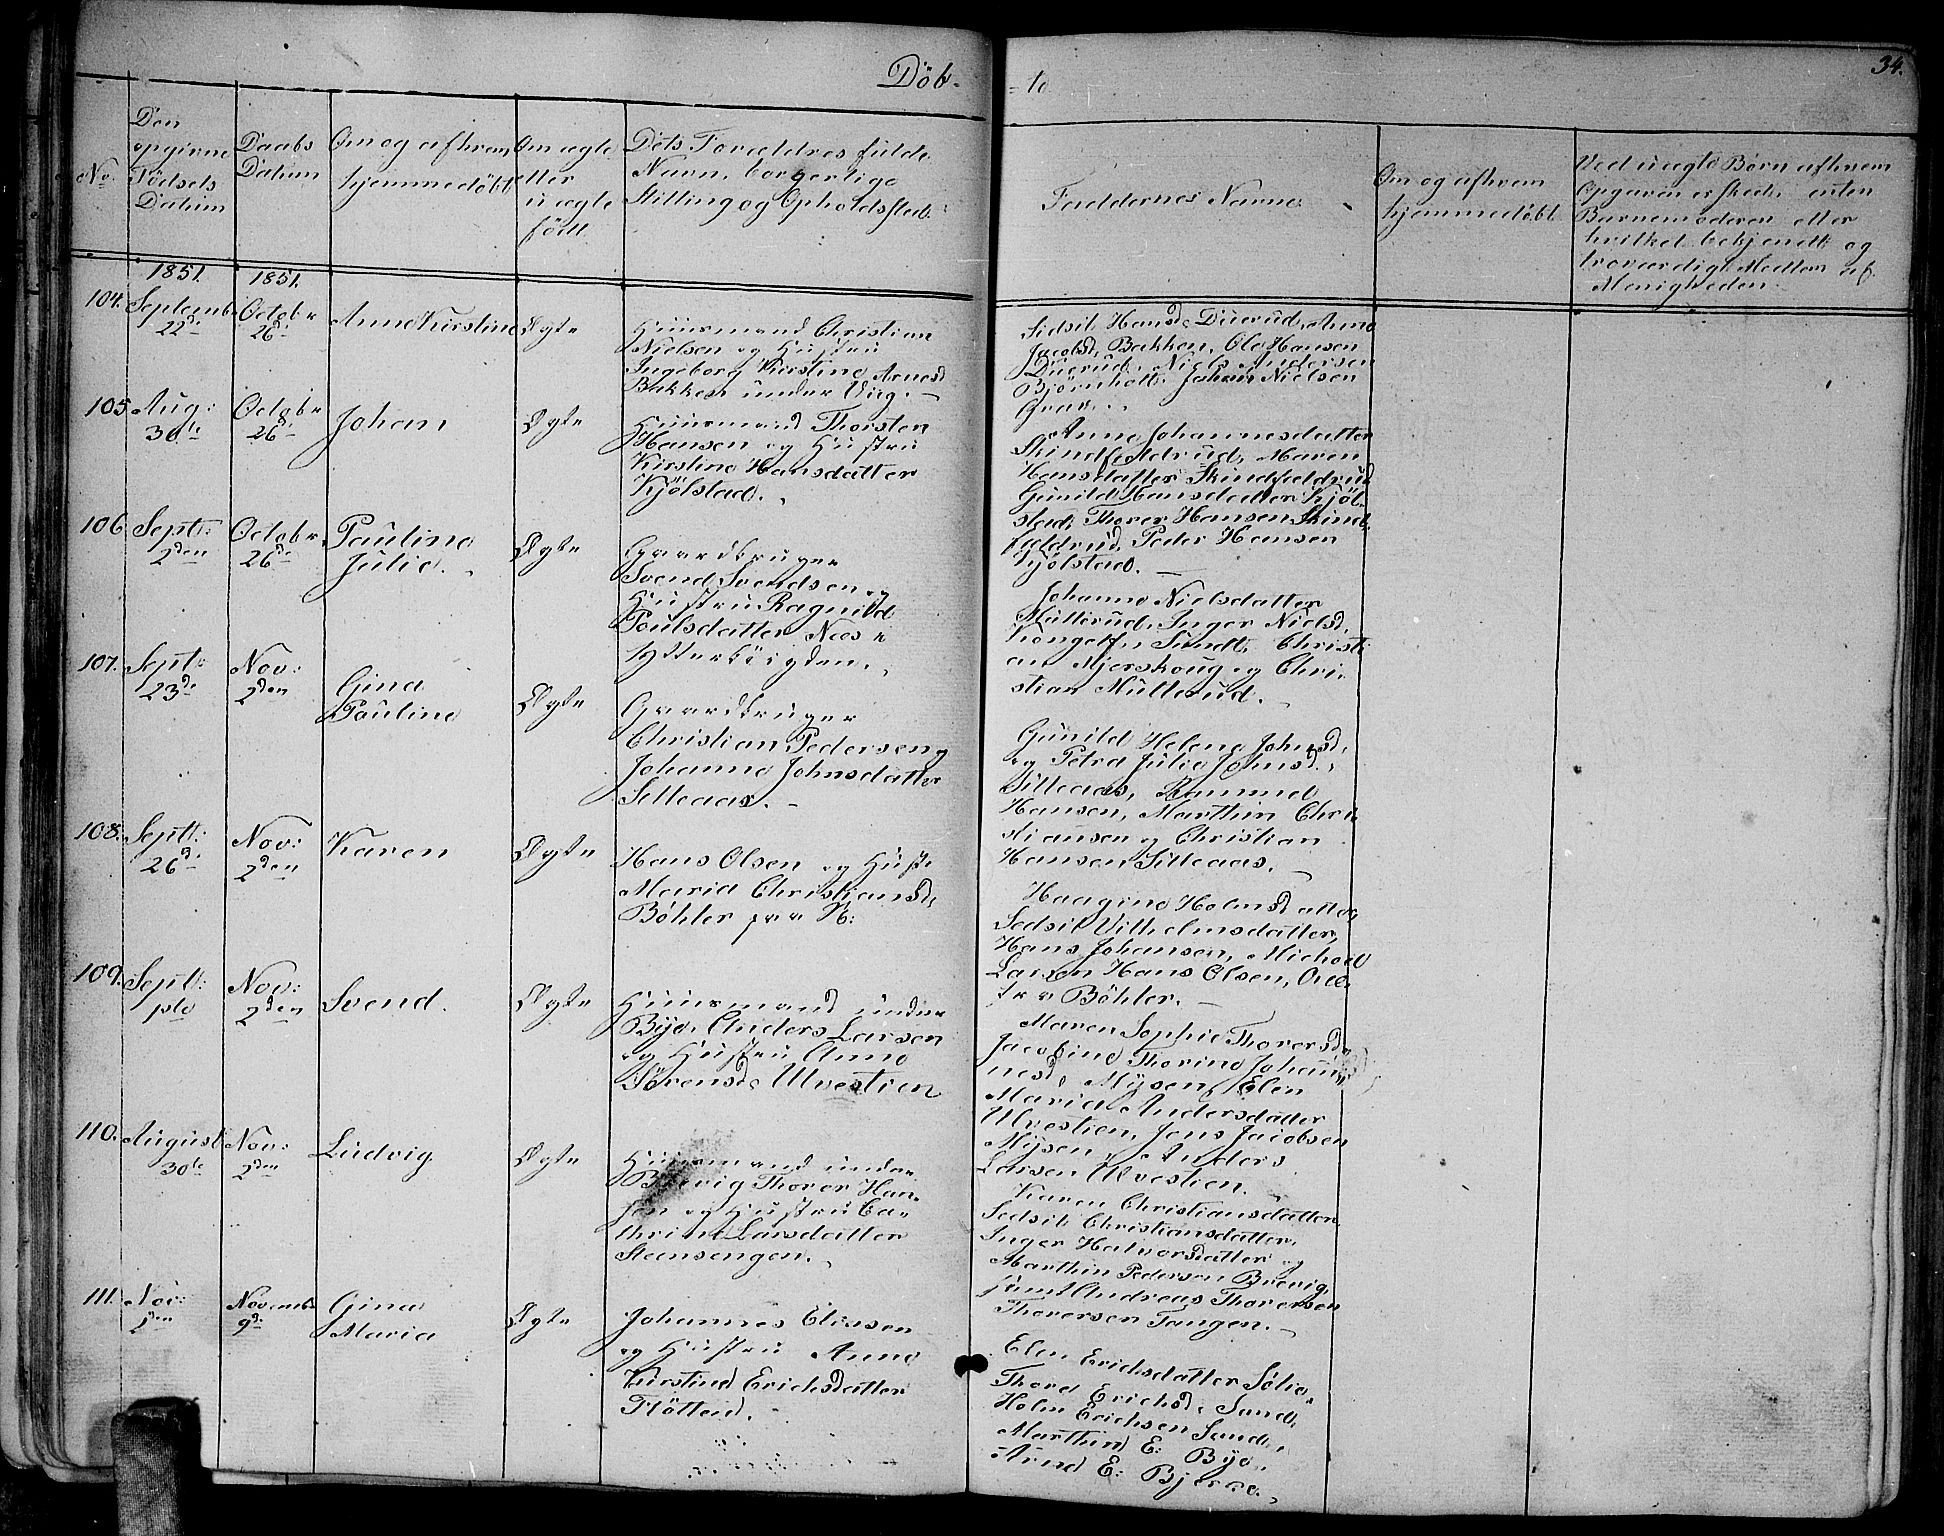 Döb-
-te
34.
No.
Den
opgivne
Födsels
Datum
Daabs
Datum
Om og af hvem
hjemmedöbt
Om ægte
eller
uægte
födt.
Dets Forældres fulde
Navn, borgerlige
Stilling og Opholdssted.
Faddernes Navne
Om og af hvem
hjemmedöbt
Ved uægte Börn af hvem
Opgaven er skedt, enten
Barnemoderen eller
hvilket bekjendt og
troværdigt Medlem af
Menigheden.
1851.
1851.
104.
Septembr
22de
Octobr
26de
Anne Kirstine
Ægte
Huusmand Christian
Nielsen og Hustru
Ingeborg Kirstine Arnesd
Bakken under Vig. –
Sidsil Hansd. Duerud, Anne
Jacobsd. Bakken, Ole Hansen
Duerud, Niels Andersen
Björnholt. Johan Nielsen
Grav.
105
Aug:
30te
Octobr
26de
Johan
Ægte
Huusmand Thorsten
Hansen og Hustru
Kirstine Hansdatter
Kjölstad.
Anne Johannesdatter
Skindfeldrud, Maren
Hansdatter Skindfeldrud
Gunild Hansdatter Kjöl-
stad, Thorer Hansen Skind-
feldrud, Peder Hansen
Kjölstad. –
106
Septr:
2den
Octobr
26de
Pauline
Julie.
Ægte
Gaardbruger
Svend Svendsen og
Hustru Ragnild
Poulsdatter Næs i
Ytterböigden.
Johanne Nielsdatter
Mullerud, Inger Nielsd.
Kongelf, Sundt, Christi-
an Mjerskoug og Chri-
stian Mullerud.
107.
Septr
23de
Nov:
2den
Gina
Pauline
Ægte
Gaardbruger
Christian Pedersen og
Johanne Johnsdatter
Silleaas. –
Gunild Helene Johnsd.
og Petra Julie Johnsd.
Silleaas, Rammed
Hansen, Marthin Chri-
stiansen og Christian
Hansen Silleaas. –
108.
Septr:
26de
Nov:
2den
Karen
Ægte
Hans Olsen og Hust.
Maria Christiansd.
Böhler paa N:
Haagine Holmsdatter
Sedsil Vilhelmsdatter,
Hans Johansen, Michael
Larsen Hans Olsen, Alle
fra Böhler. –
109.
Septr:
1ste
Nov:
2den
Svend.
Ægte
Huusmand under
Bye, Anders Larsen
og Hustru Anne
Sörensd. Ulvestien
Maren Sophie Thorersd.
Jacobine Thorine Johan-
nesd. Mysen, Elen
Maria Andersdatter
Ulvestien, Jens Jacobsen
Mysen, Anders
Larsen Ulvestien.
110.
August
30te
Nov:
2den
Ludvig
Ægte
Huusmand under
Brevig Thorer Han-
sen og Hustru Ca-
thrine Larsdatter
Steensengen.
Karen Christiansdatter
Sedsil Christiansdatter,
Inger Halvorsdatter og
Marthin Pedersen Brevig,
samt Andreas Thorersen
Thorersen Tangen. –
111.
Nov:
1den
Novembr
9de
Gina
Maria
Ægte
Johannes Eliasen
og Hustru Anne
Kirstine Erichsdatter
Flötteid.
Elen Erichsdatter Sölie,
Thore Erichsd. Sund,
Holm Erichsen Sund,
Marthin E: Bye,
Arne E: Bjerke.